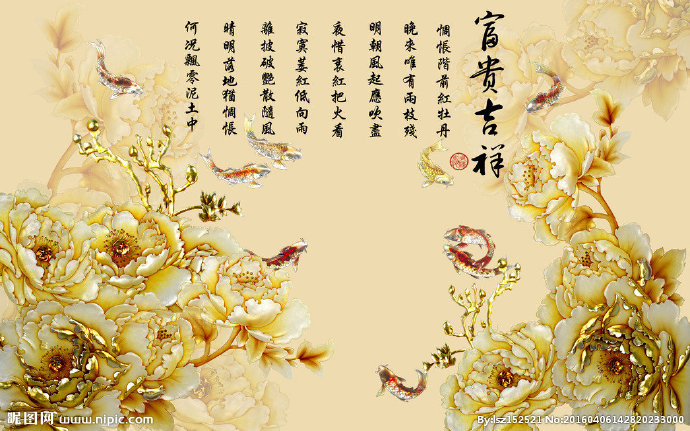 富貴吉祥
惆悵階前紅牡丹
晚來唯有兩枝殘
明朝風起應吹盡
夜惜衰紅把火看
寂寞萎紅低向雨
離披破艷散隨風
晴明落地猶惆悵
何況飄零泥土中
昵图网 www.nipic.com
By:lsz152521 No:20160406142820233000